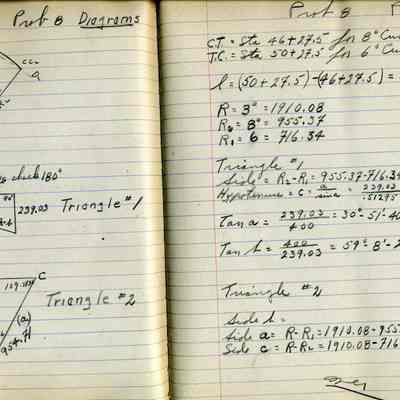 Prob 8 Diagrams
a
check 180°
239.03 Triangle #1
C
Triangle #2
(a)
954.71
Prob 8 P
C.T. = Sta 46+27.5 for 8° Cur
T.C. = Sta 50+27.5 for 6° Cur
l = (50+27.5)-(46+27.5) =
R = 3° = 1910.08
R2 = 8° = 955.37
R1 = 6 = 716.34
Triangle #1
Side = R2-R1 = 955.37-716.34
Hypotenuse = C = a/sin a = 239.03/.51295
Tan a = 239.03/400 = 30°-51'-40
Tan b = 400/239.03 = 59°-8'-2
Triangle #2
Side b =
Side a = R-R1 = 1910.08-955
Side c = R-R2 = 1910.08-716